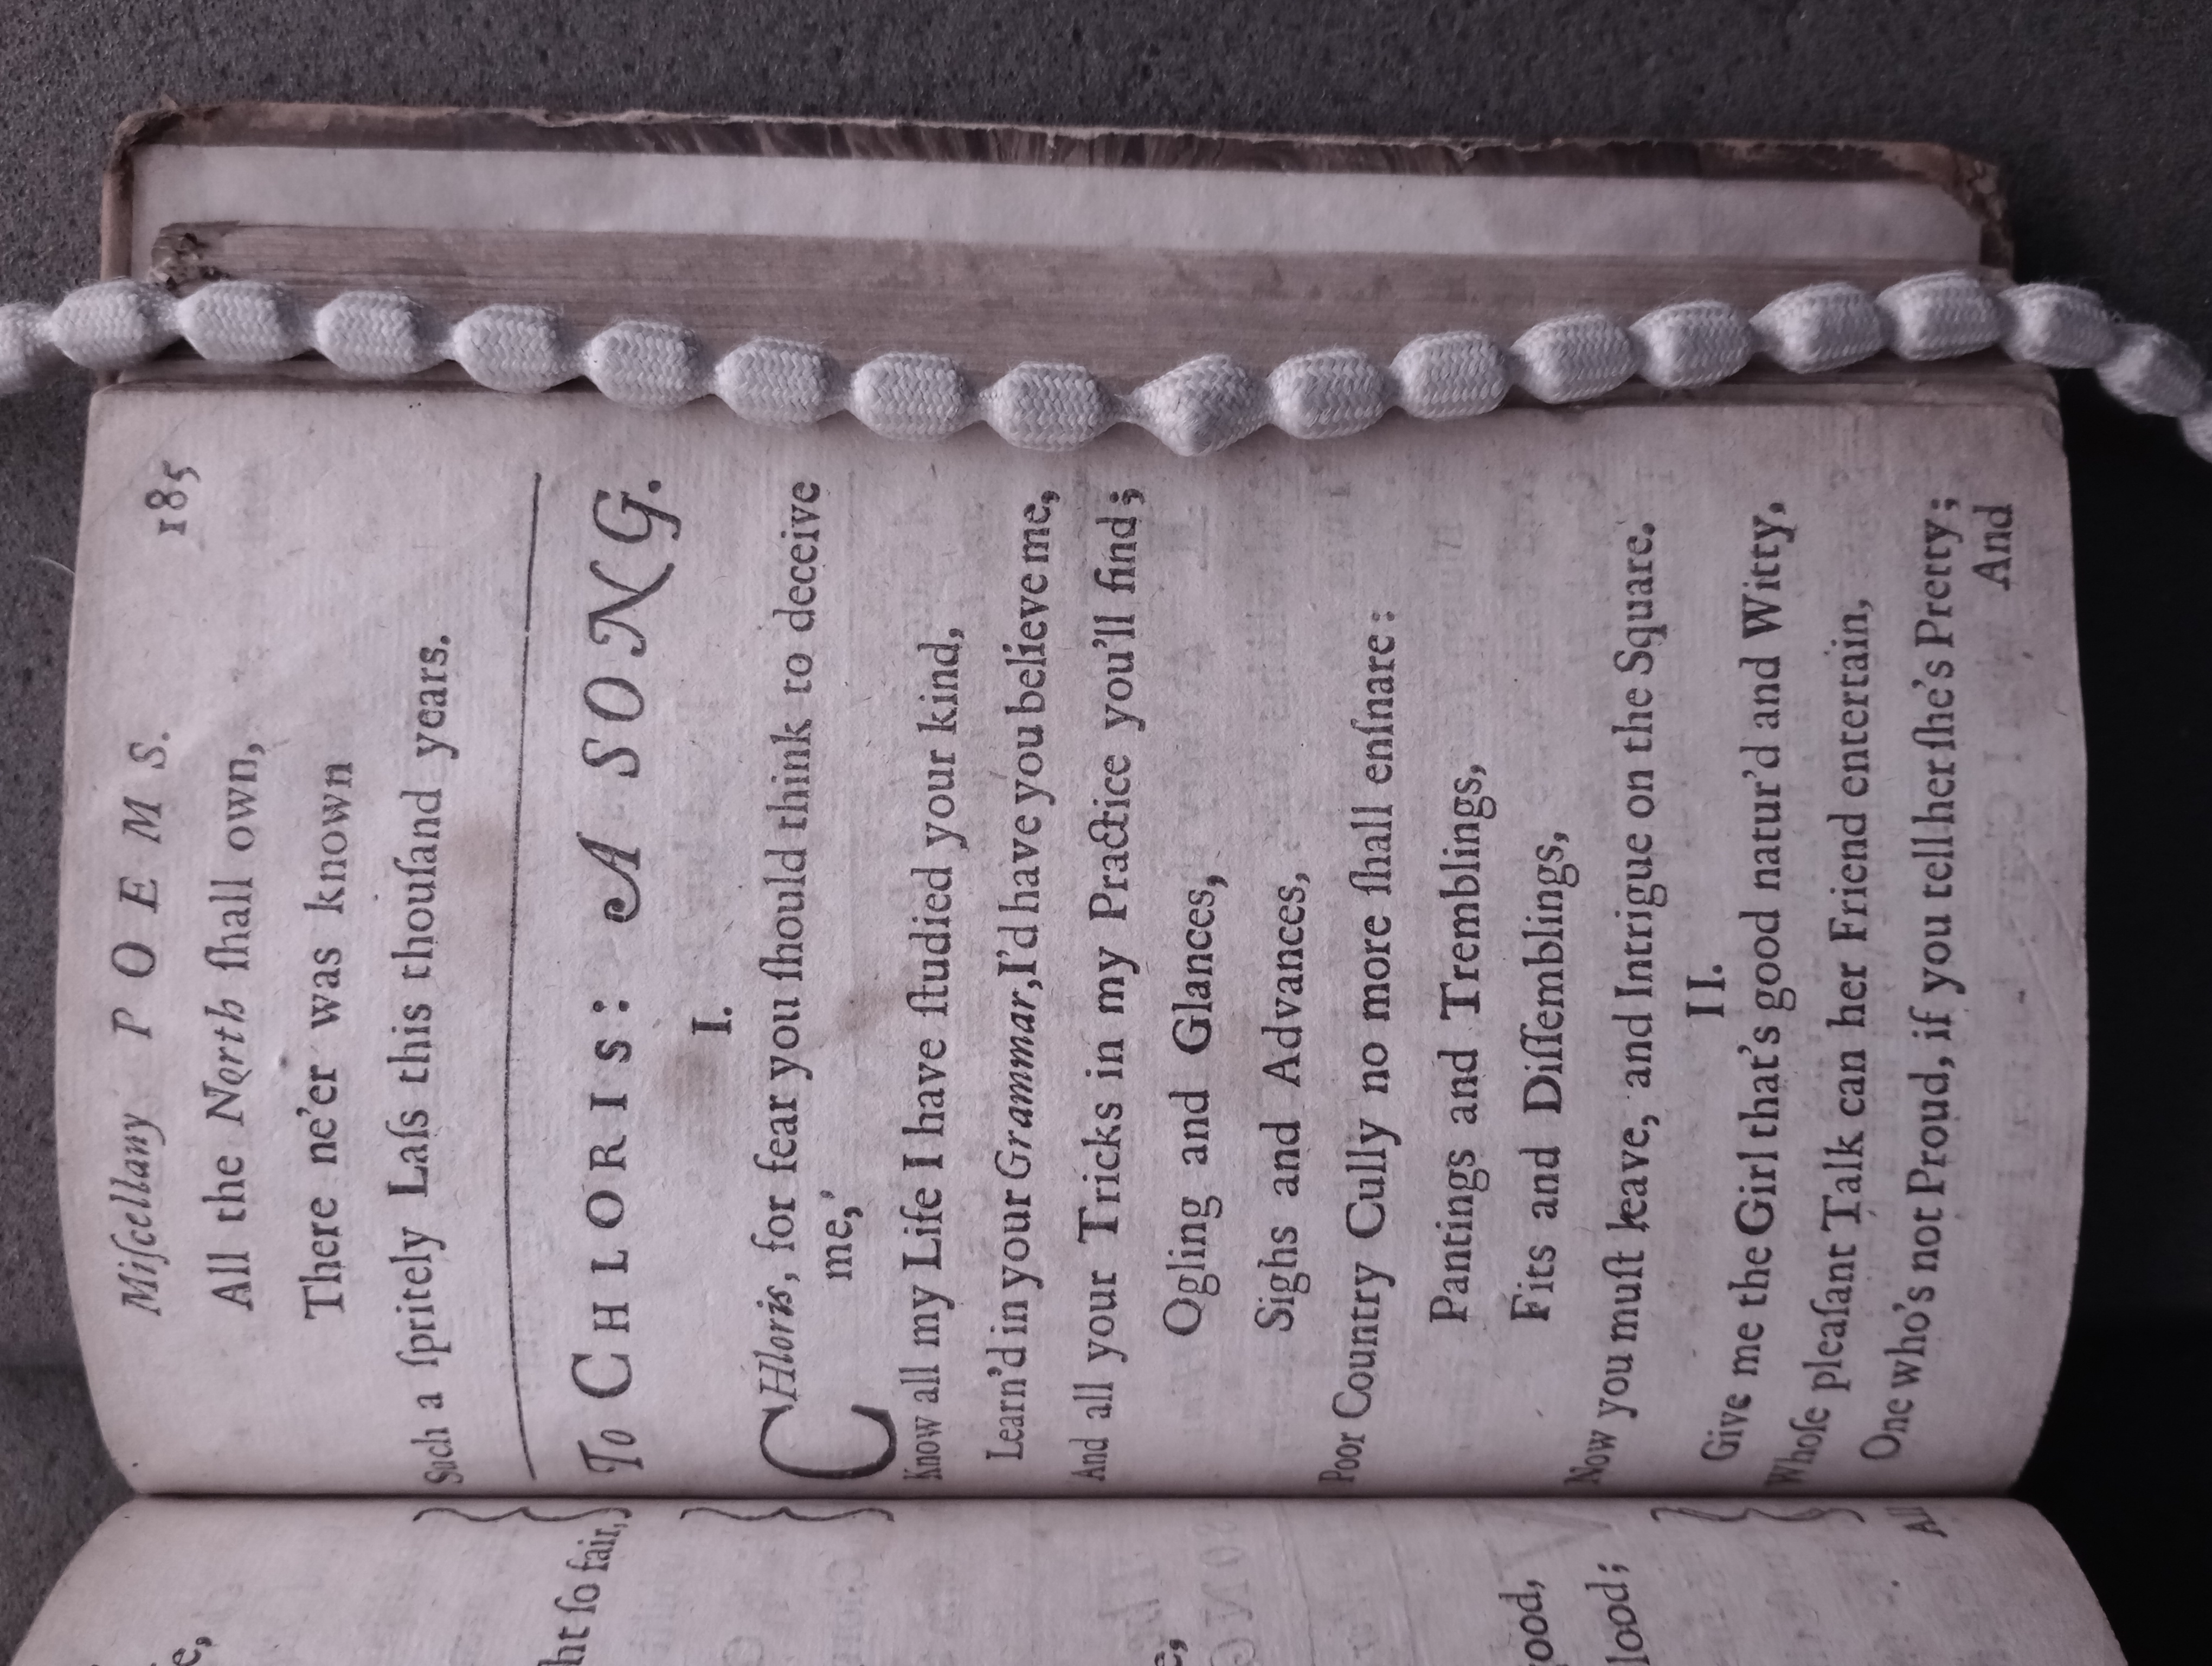 Miſcellany POEMS. 185
All the North ſhall own,
There ne'er was known
Such a ſpritely Laſs this thouſand years.
To CHLORIS: A SONG.
I.
CHloris, for fear you ſhould think to deceive
me,'
Know all my Life I have ſtudied your kind,
Learn'd in your Grammar, I'd have you believe me,
And all your Tricks in my Practice you'll find;
Ogling and Glances,
Sighs and Advances,
Poor Country Cully no more ſhall enſnare:
Pantings and Tremblings,
Fits and Diſſemblings,
Now you muſt leave, and Intrigue on the Square.
II.
Give me the Girl that's good natur'd and Witty,
Whoſe pleaſant Talk can her Friend entertain,
One who's not Proud, if you tell her ſhe's Pretty;
And
ſo fair,
All